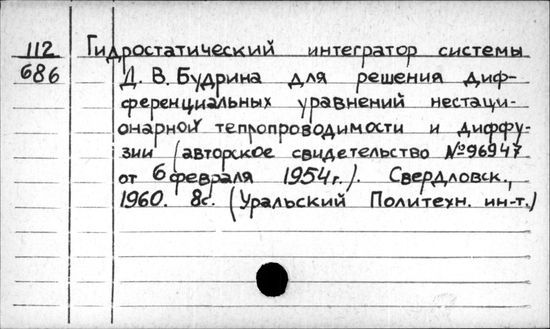 112 Гидростатический интегратор системы
686 Д. В. Будрина для решения диф-
ференциальных уравнений нестаци-
онарной теплопроводимости и диффу-
зии (авторское свидетельство №96947
от 6 февраля 1954г.). Свердловск.,
1960. 8с. (Уральский Политехн. ин-т.)